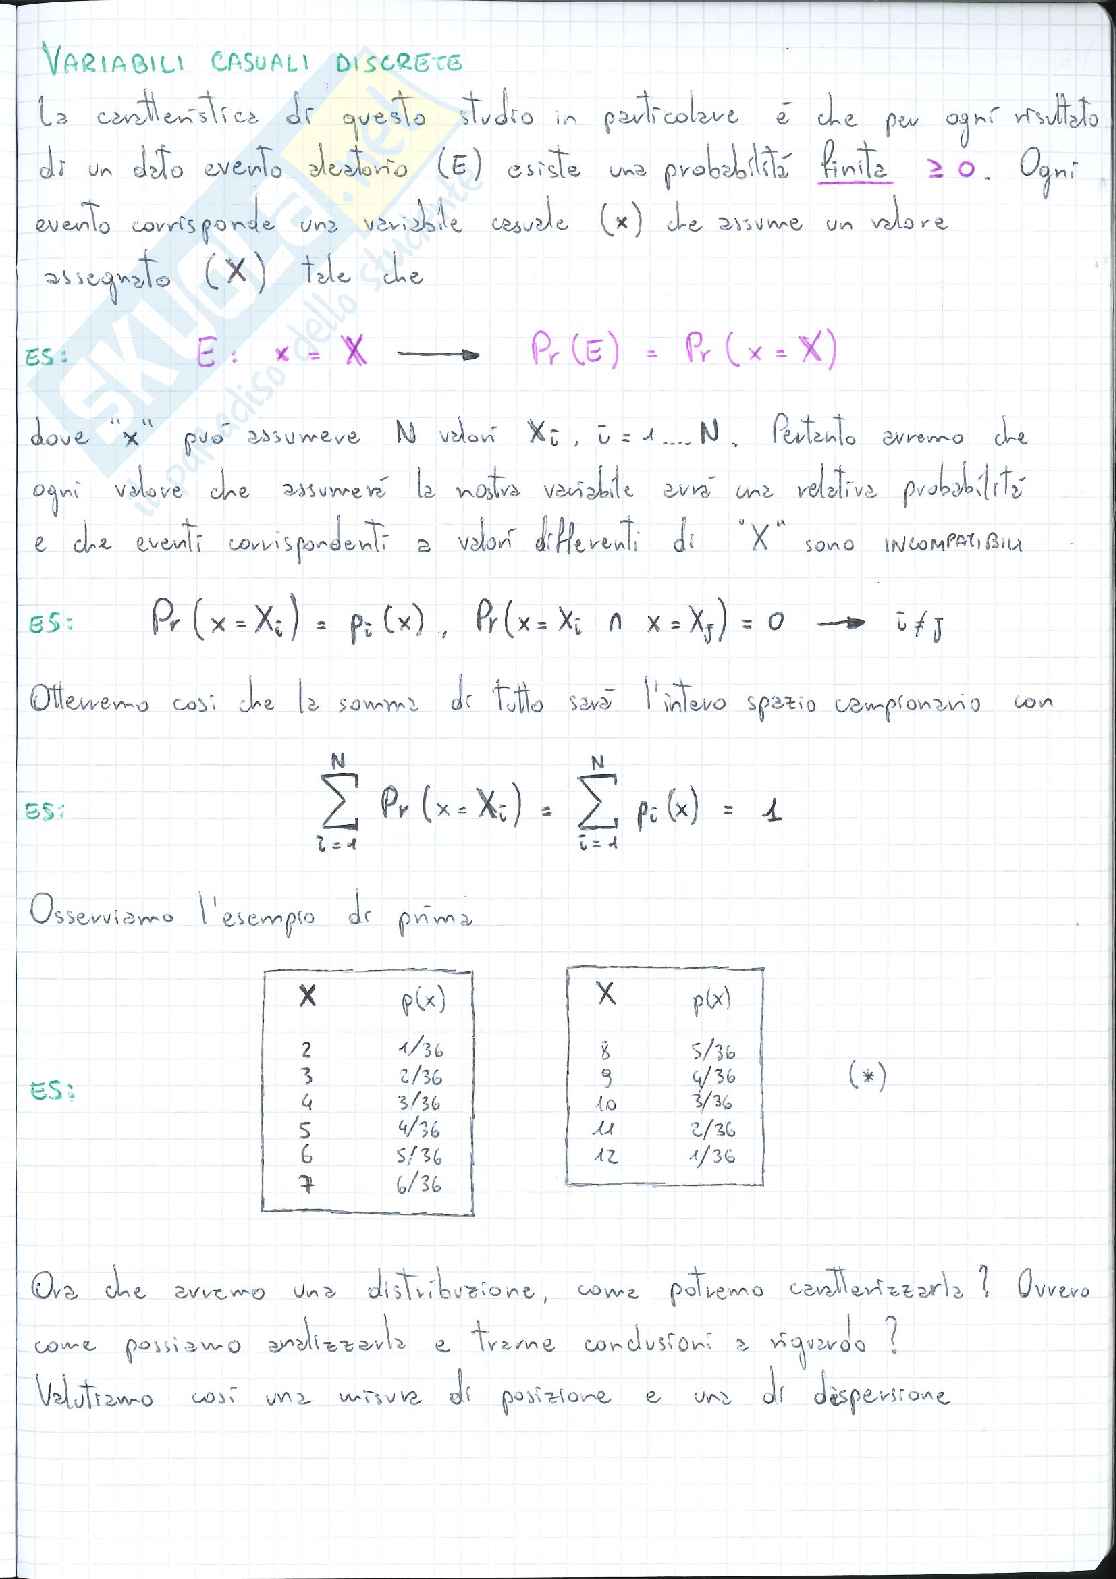 VARIABILI CASUALI DISCRETE
La caratteristica di questo studio in particolare é che per ogni risultato
di un dato evento aleatorio (E) esiste una probabilitá finita ≥ 0. Ogni
evento corrisponde una variabile casuale (x) che assume un valore
assegnato (X) tale che
ES: E: x = X → Pr(E) = Pr(x = X)
dove "x" puó assumere N valori Xi, i = 1....N. Pertanto avremo che
ogni valore che assumerá la nostra variabile avrá una relativa probabilitá
e che eventi corrispondenti a valori differenti di "X" sono INCOMPATIBILI
ES: Pr(x = Xi) = pi(x), Pr(x = Xi ∩ x = XJ) = 0 → i ≠ J
Otterremo cosi che la somma di tutto sará l'intero spazio campionario con
ES: N∑i=1 Pr(x = Xi) = N∑i=1 pi(x) = 1
Osserviamo l'esempio di prima
X p(x) X p(x)
2 1/36 8 5/36
3 2/36 9 4/36
ES: (*)
4 3/36 10 3/36
5 4/36 11 2/36
6 5/36 12 1/36
7 6/36
Ora che avremo una distribuzione, come potremo caratterizzarla? Ovvero
come possiamo analizzarla e trarne conclusioni a riguardo?
Valutiamo cosí una misura di posizione e una di dispersione
SKUOLA.net
il paradiso dello studente